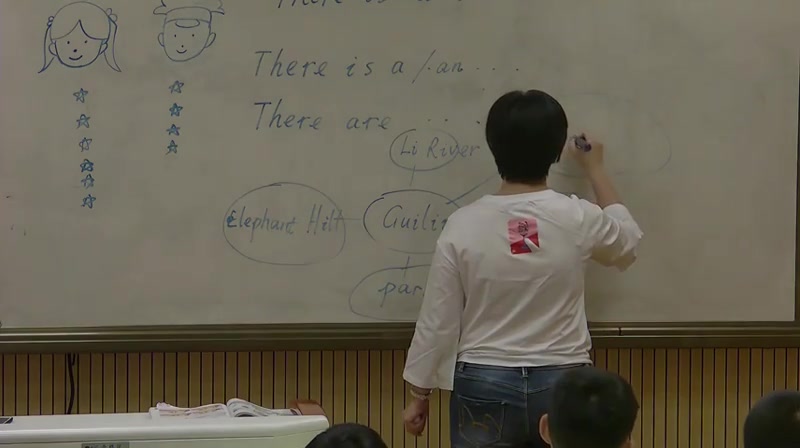 There is a
There is a / an ...
There are ...
Li River
Elephant Hill
Guilin
par